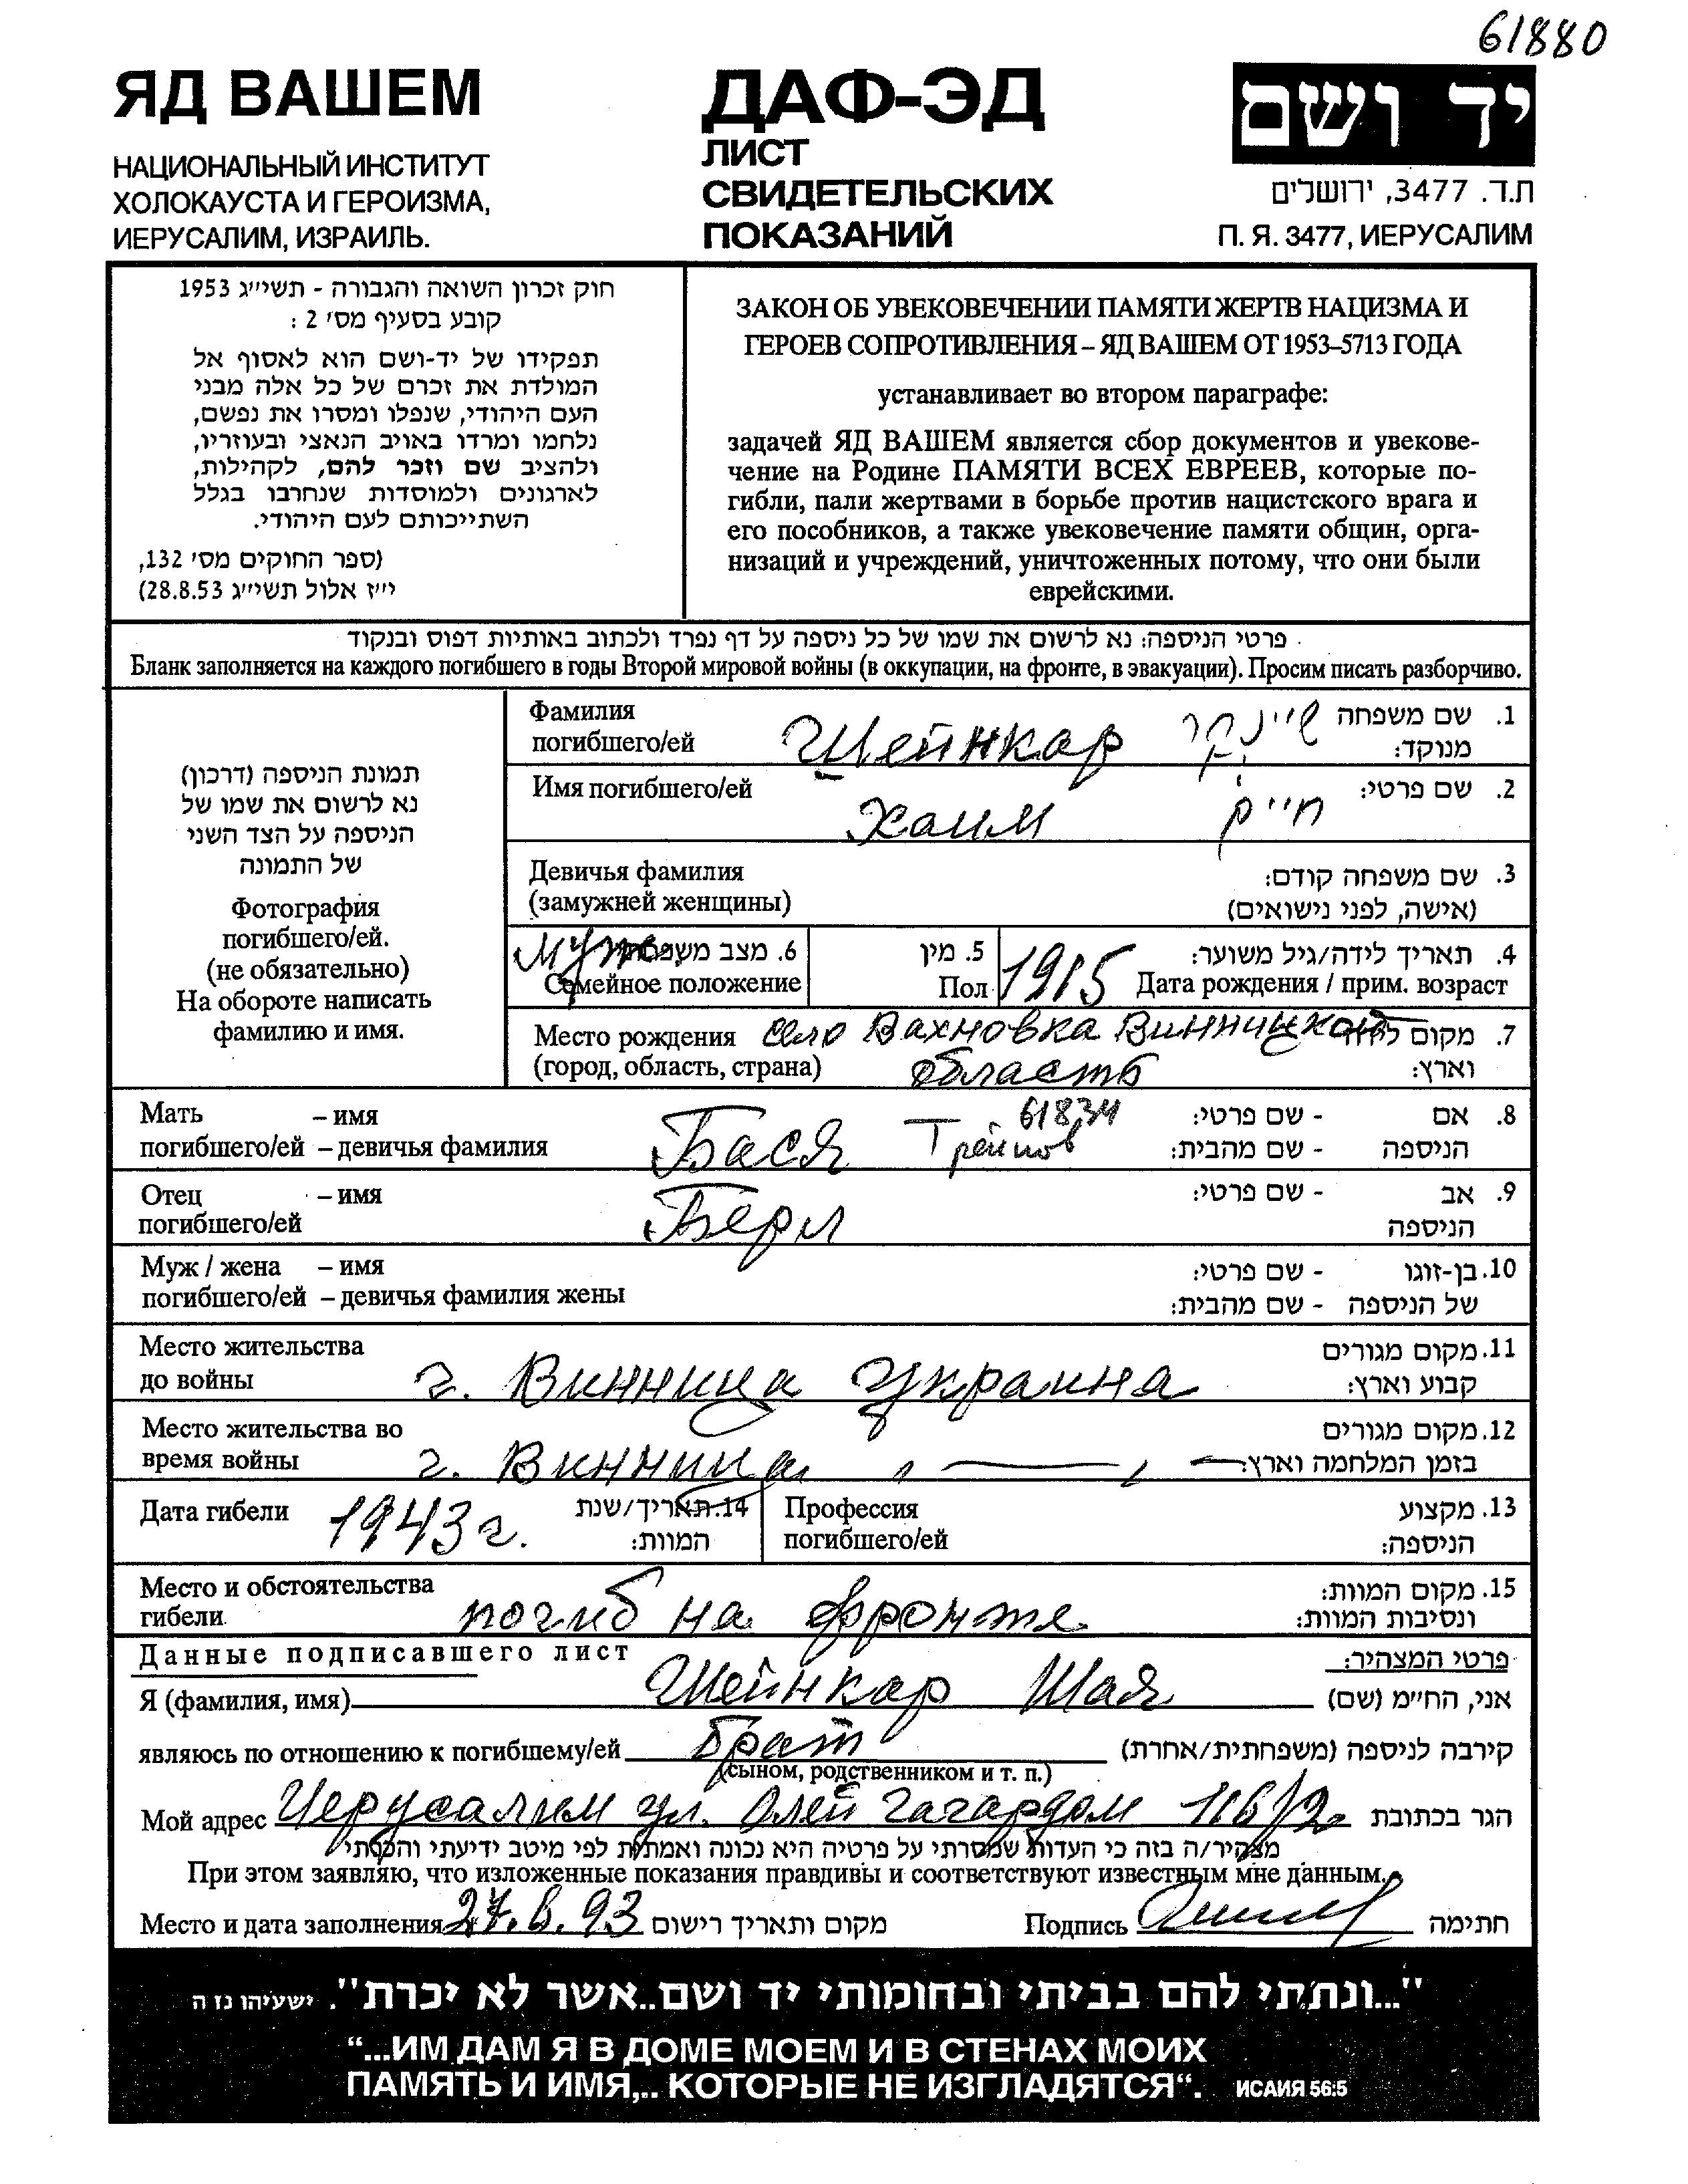 61880
ЯД ВАШЕМ
НАЦИОНАЛЬНЫЙ ИНСТИТУТ
ХОЛОКАУСТА И ГЕРОИЗМА,
ИЕРУСАЛИМ, ИЗРАИЛЬ.
ДАФ-ЭД
ЛИСТ
СВИДЕТЕЛЬСКИХ
ПОКАЗАНИЙ
יד ושם
ת.ד. 3477, ירושלים
П. Я. 3477, ИЕРУСАЛИМ
חוק זכרון השואה והגבורה - תשי״ג 1953
קובע בסעיף מס׳ 2 :
תפקידו של יד-ושם הוא לאסוף אל
המולדת את זכרם של כל אלה מבני
העם היהודי, שנפלו ומסרו את נפשם,
נלחמו ומרדו באויב הנאצי ובעוזריו,
ולהציב שם וזכר להם, לקהילות,
לארגונים ולמוסדות שנחרבו בגלל
השתייכותם לעם היהודי.
(ספר החוקים מס׳ 132,
י״ז אלול תשי״ג 28.8.53)
ЗАКОН ОБ УВЕКОВЕЧЕНИИ ПАМЯТИ ЖЕРТВ НАЦИЗМА И
ГЕРОЕВ СОПРОТИВЛЕНИЯ – ЯД ВАШЕМ ОТ 1953–5713 ГОДА
устанавливает во втором параграфе:
задачей ЯД ВАШЕМ является сбор документов и увекове-
чение на Родине ПАМЯТИ ВСЕХ ЕВРЕЕВ, которые по-
гибли, пали жертвами в борьбе против нацистского врага и
его пособников, а также увековечение памяти общин, орга-
низаций и учреждений, уничтоженных потому, что они были
еврейскими.
פרטי הניספה: נא לרשום את שמו של כל ניספה על דף נפרד ולכתוב באותיות דפוס ובנקוד
Бланк заполняется на каждого погибшего в годы Второй мировой войны (в оккупации, на фронте, в эвакуации). Просим писать разборчиво.
תמונת הניספה (דרכון)
נא לרשום את שמו של
הניספה על הצד השני
של התמונה
Фотография
погибшего/ей.
(не обязательно)
На обороте написать
фамилию и имя.
Фамилия погибшего/ей Шейнкар שיינקר 1. שם משפחה מנוקד:
Имя погибшего/ей Хаим חיים 2. שם פרטי:
Девичья фамилия 3. שם משפחה קודם:
(замужней женщины) (אישה, לפני נישואים)
Муж. 6. מצב משפחתי 5. מין 1915 4. תאריך לידה/גיל משוער:
Семейное положение Пол Дата рождения / прим. возраст
Место рождения село Вахновка Винницкой 7. מקום לידה
(город, область, страна) область וארץ:
Мать – имя 61834 8. אם - שם פרטי:
погибшего/ей – девичья фамилия Бася הניספה - שם מהבית:
Отец – имя 9. אב - שם פרטי:
погибшего/ей Берл הניספה
Муж / жена – имя 10. בן-זוגו - שם פרטי:
погибшего/ей – девичья фамилия жены של הניספה - שם מהבית:
Место жительства 11. מקום מגורים
до войны г. Винница Украина קבוע וארץ:
Место жительства во 12. מקום מגורים
время войны г. Винница בזמן המלחמה וארץ:
Дата гибели 1943 г. 14. תאריך/שנת המוות: Профессия погибшего/ей 13. מקצוע הניספה:
Место и обстоятельства 15. מקום המוות:
гибели погиб на фронте ונסיבות המוות:
Данные подписавшего лист פרטי המצהיר:
Я (фамилия, имя) Шейнкар Шая אני, הח״מ (שם)
являюсь по отношению к погибшему/ей брат קירבה לניספה (משפחתית/אחרת)
(сыном, родственником и т. п.)
Мой адрес Иерусалим ул. Олей Гагардом 116/2 הגר בכתובת
מצהיר/ה בזה כי העדות שמסרתי על פרטיה היא נכונה ואמתית לפי מיטב ידיעתי והכרתי
При этом заявляю, что изложенные показания правдивы и соответствуют известным мне данным.
Место и дата заполнения 27.6.93 מקום ותאריך רישום Подпись חתימה
"...ונתתי להם בביתי ובחומותי יד ושם..אשר לא יכרת". ישעיהו נז ה
“...ИМ ДАМ Я В ДОМЕ МОЕМ И В СТЕНАХ МОИХ
ПАМЯТЬ И ИМЯ,.. КОТОРЫЕ НЕ ИЗГЛАДЯТСЯ“. ИСАИЯ 56:5